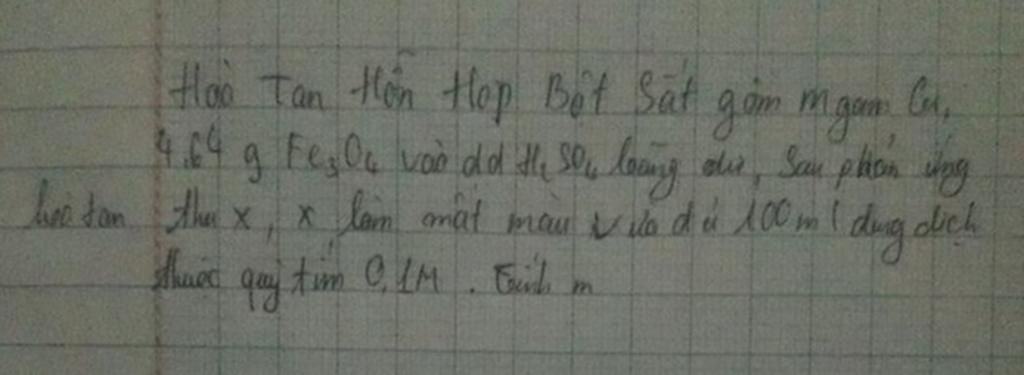 Hoà Tan Hỗn Hợp Bột Sắt gồm m gam Cu,
4,64 g Fe3O4 vào dd H2SO4 loãng dư, Sau phản ứng
hoà tan thu x, x làm mất màu vừa đủ 100ml dung dịch
thuốc quỳ tím 0,1M. Tính m